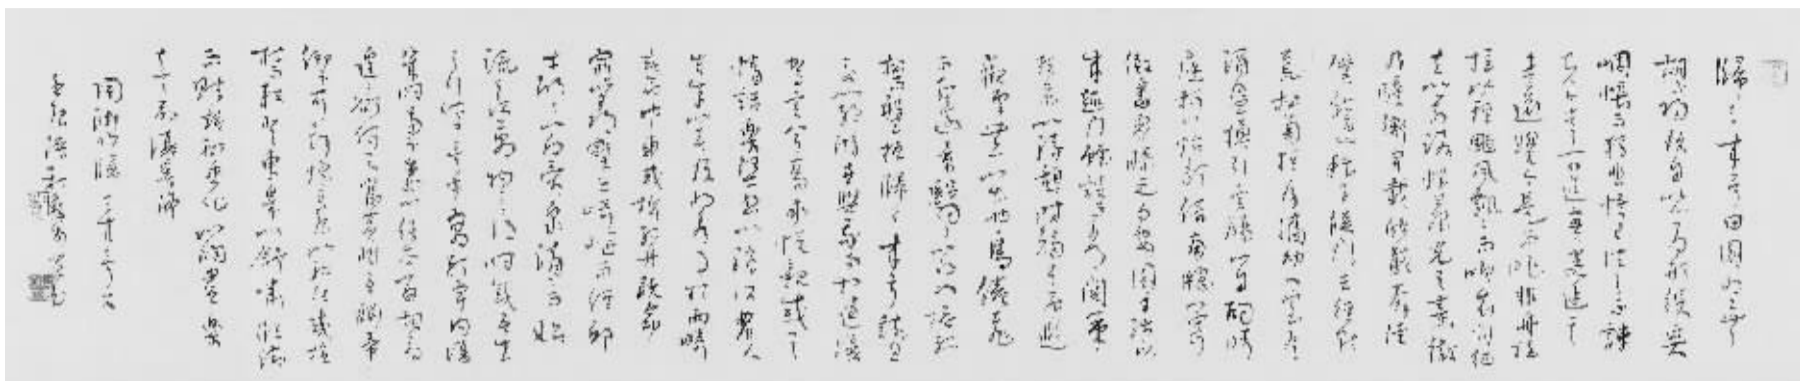 歸去來兮田園將蕪
胡不歸既自以心為形役奚
惆悵而獨悲悟已往之不諫
知來者之可追實迷途其
未遠覺今是而昨非舟遙
遙以輕颺風飄飄而吹衣問征
夫以前路恨晨光之熹微
乃瞻衡宇載欣載奔僮
僕歡迎稚子候門三徑就
荒松菊猶存攜幼入室有
酒盈樽引壺觴以自酌眄
庭柯以怡顏倚南窗以寄
傲審容膝之易安園日涉以
成趣門雖設而常關策
扶老以流憩時矯首而遐
觀雲無心以出岫鳥倦飛
而知還景翳翳以將入撫孤
松而盤桓歸去來兮請息
交以絕遊世與我而相遺復
駕言兮焉求悅親戚之
情話樂琴書以消憂農人
告余以春及將有事於西疇
或命巾車或棹孤舟既窈
窕以尋壑亦崎嶇而經邱
木欣欣以向榮泉涓涓而始
流羨萬物之得時感吾生
之行休已矣乎寓形宇內復
幾時曷不委心任去留胡為
遑遑欲何之富貴非吾願帝
鄉不可期懷良辰以孤往或植
杖而耘耔登東皋以舒嘯臨清流
而賦詩聊乘化以歸盡樂
夫天命復奚疑
陶淵明歸去來兮辭